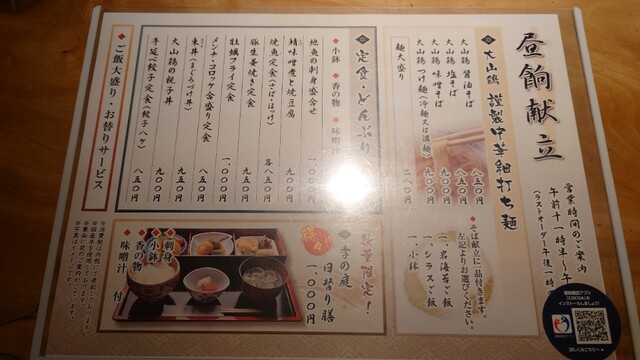 昼餉献立
営業時間のご案内
午前十一時半〜午
(ラストオーダー午後一時
大山鶏 謹製中華細打ち麺
大山鶏 醤油そば 八五〇円
大山鶏 塩そば 八五〇円
大山鶏 味噌そば 九〇〇円
大山鶏 つけ麺(冷麺又は温麺) 九〇〇円
麺大盛り 二八〇円
◆そば献立に一品付きます。
左記よりお選びください。
一、岩海苔ご飯
一、シラスご飯
一、小鉢
定食・どんぶり
◆小鉢 ◆香の物 ◆味噌汁
地魚の刺身盛合せ 一、〇〇〇円
鯖味噌煮と焼豆腐 九〇〇円
焼魚定食(さば・ほっけ) 各八五〇円
豚生姜焼き定食 九五〇円
牡蠣フライ定食 一、〇〇〇円
メンチ・コロッケ合盛り定食 九五〇円
朱丼(まぐろづけ丼) 九五〇円
大山鶏の親子丼 九〇〇円
手延べ餃子定食(餃子八ケ) 八五〇円
◆ご飯大盛り・お替りサービス
数量限定!
季の庭
日替り膳
一、〇〇〇円
◆刺身
◆小鉢
◆香の物
◆味噌汁 付
詳しくはこちらへ